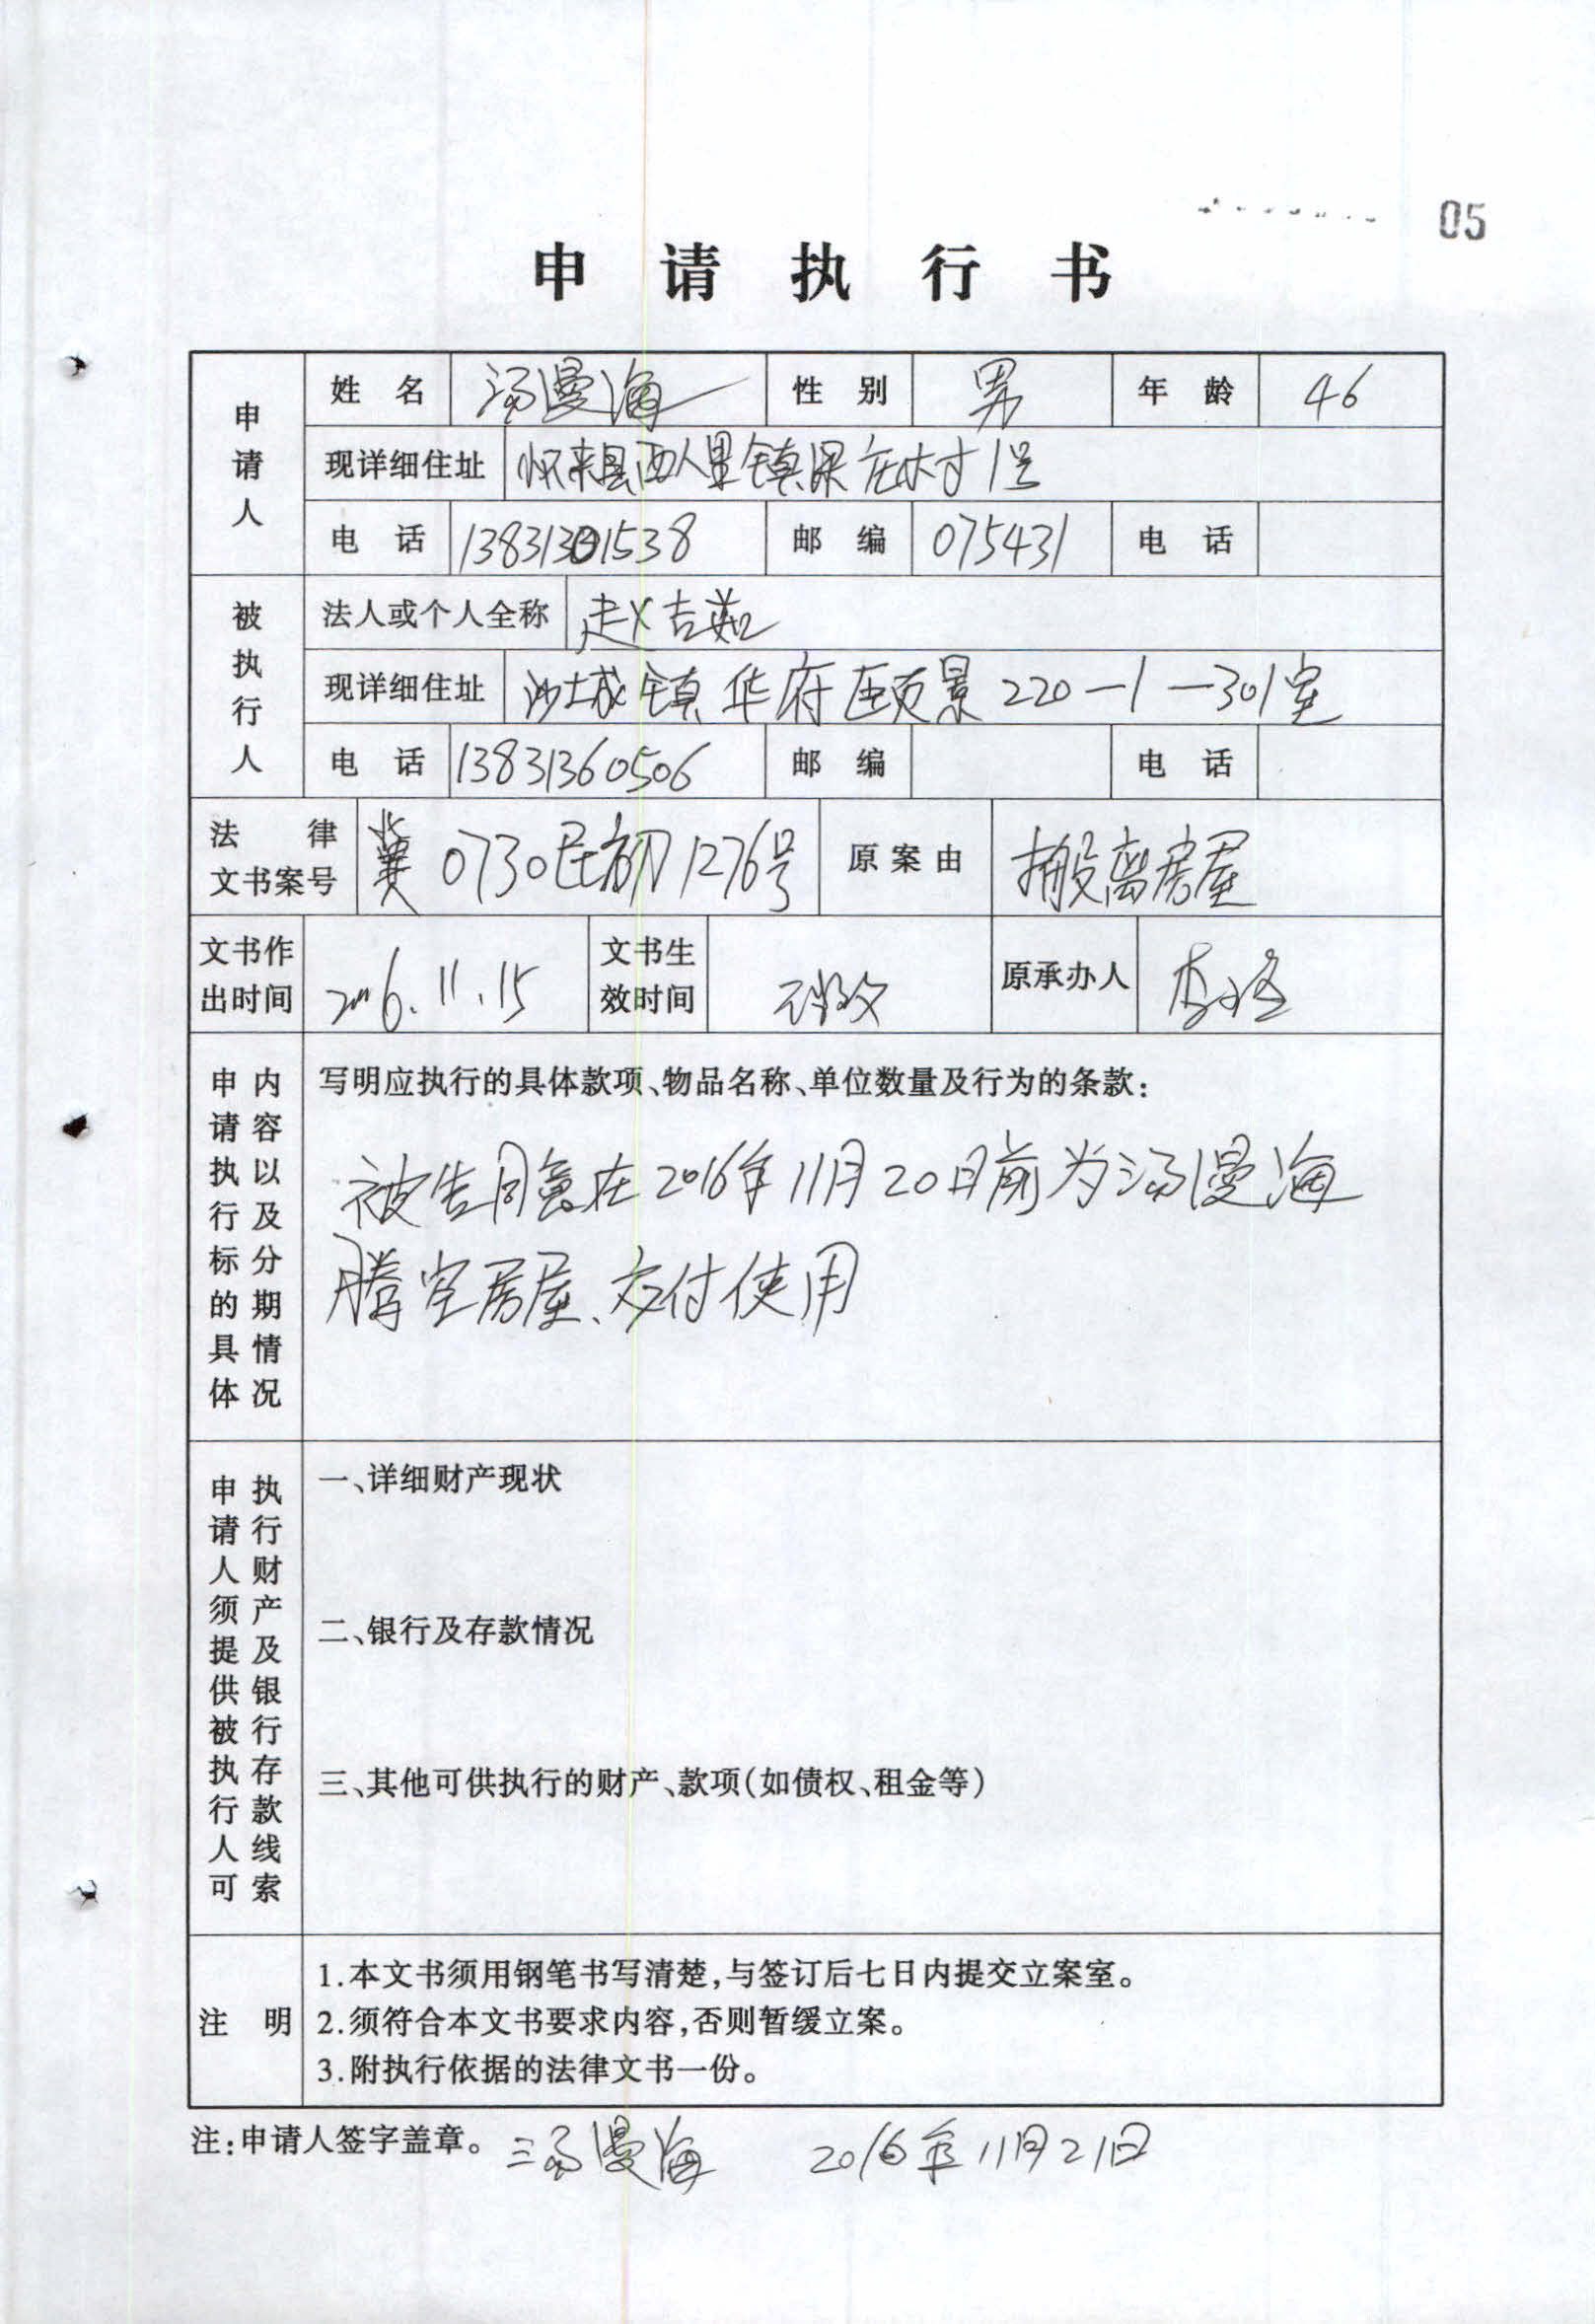 05
申请执行书
申请人 姓名 汤漫海 性别 男 年龄 46
现详细住址 怀来县西八里镇梁庄村1号
电话 13831301538 邮编 075431 电话
被执行人 法人或个人全称 赵吉茹
现详细住址 沙城镇华府颐景220-1-301室
电话 13831360506 邮编 电话
法律文书案号 冀0730民初1276号 原案由 搬离房屋
文书作出时间 2016.11.15 文书生效时间 原承办人
申请执行标的具体内容以及分期情况
写明应执行的具体款项、物品名称、单位数量及行为的条款:
被告同意在2016年11月20日前为汤漫海
腾空房屋、交付使用
申请人须提供被执行人可执行财产及银行存款线索
一、详细财产现状
二、银行及存款情况
三、其他可供执行的财产、款项(如债权、租金等)
注明
1.本文书须用钢笔书写清楚,与签订后七日内提交立案室。
2.须符合本文书要求内容,否则暂缓立案。
3.附执行依据的法律文书一份。
注:申请人签字盖章。 汤漫海 2016年11月21日